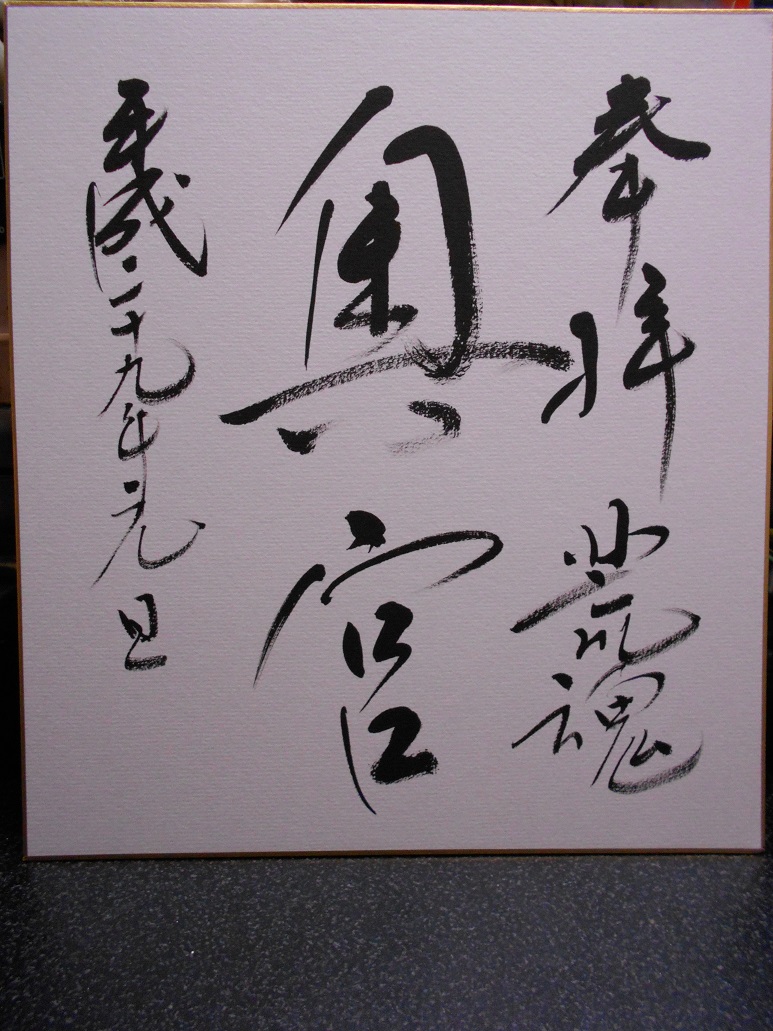 奉拝荒魂
奥宮
平成二十九年元旦